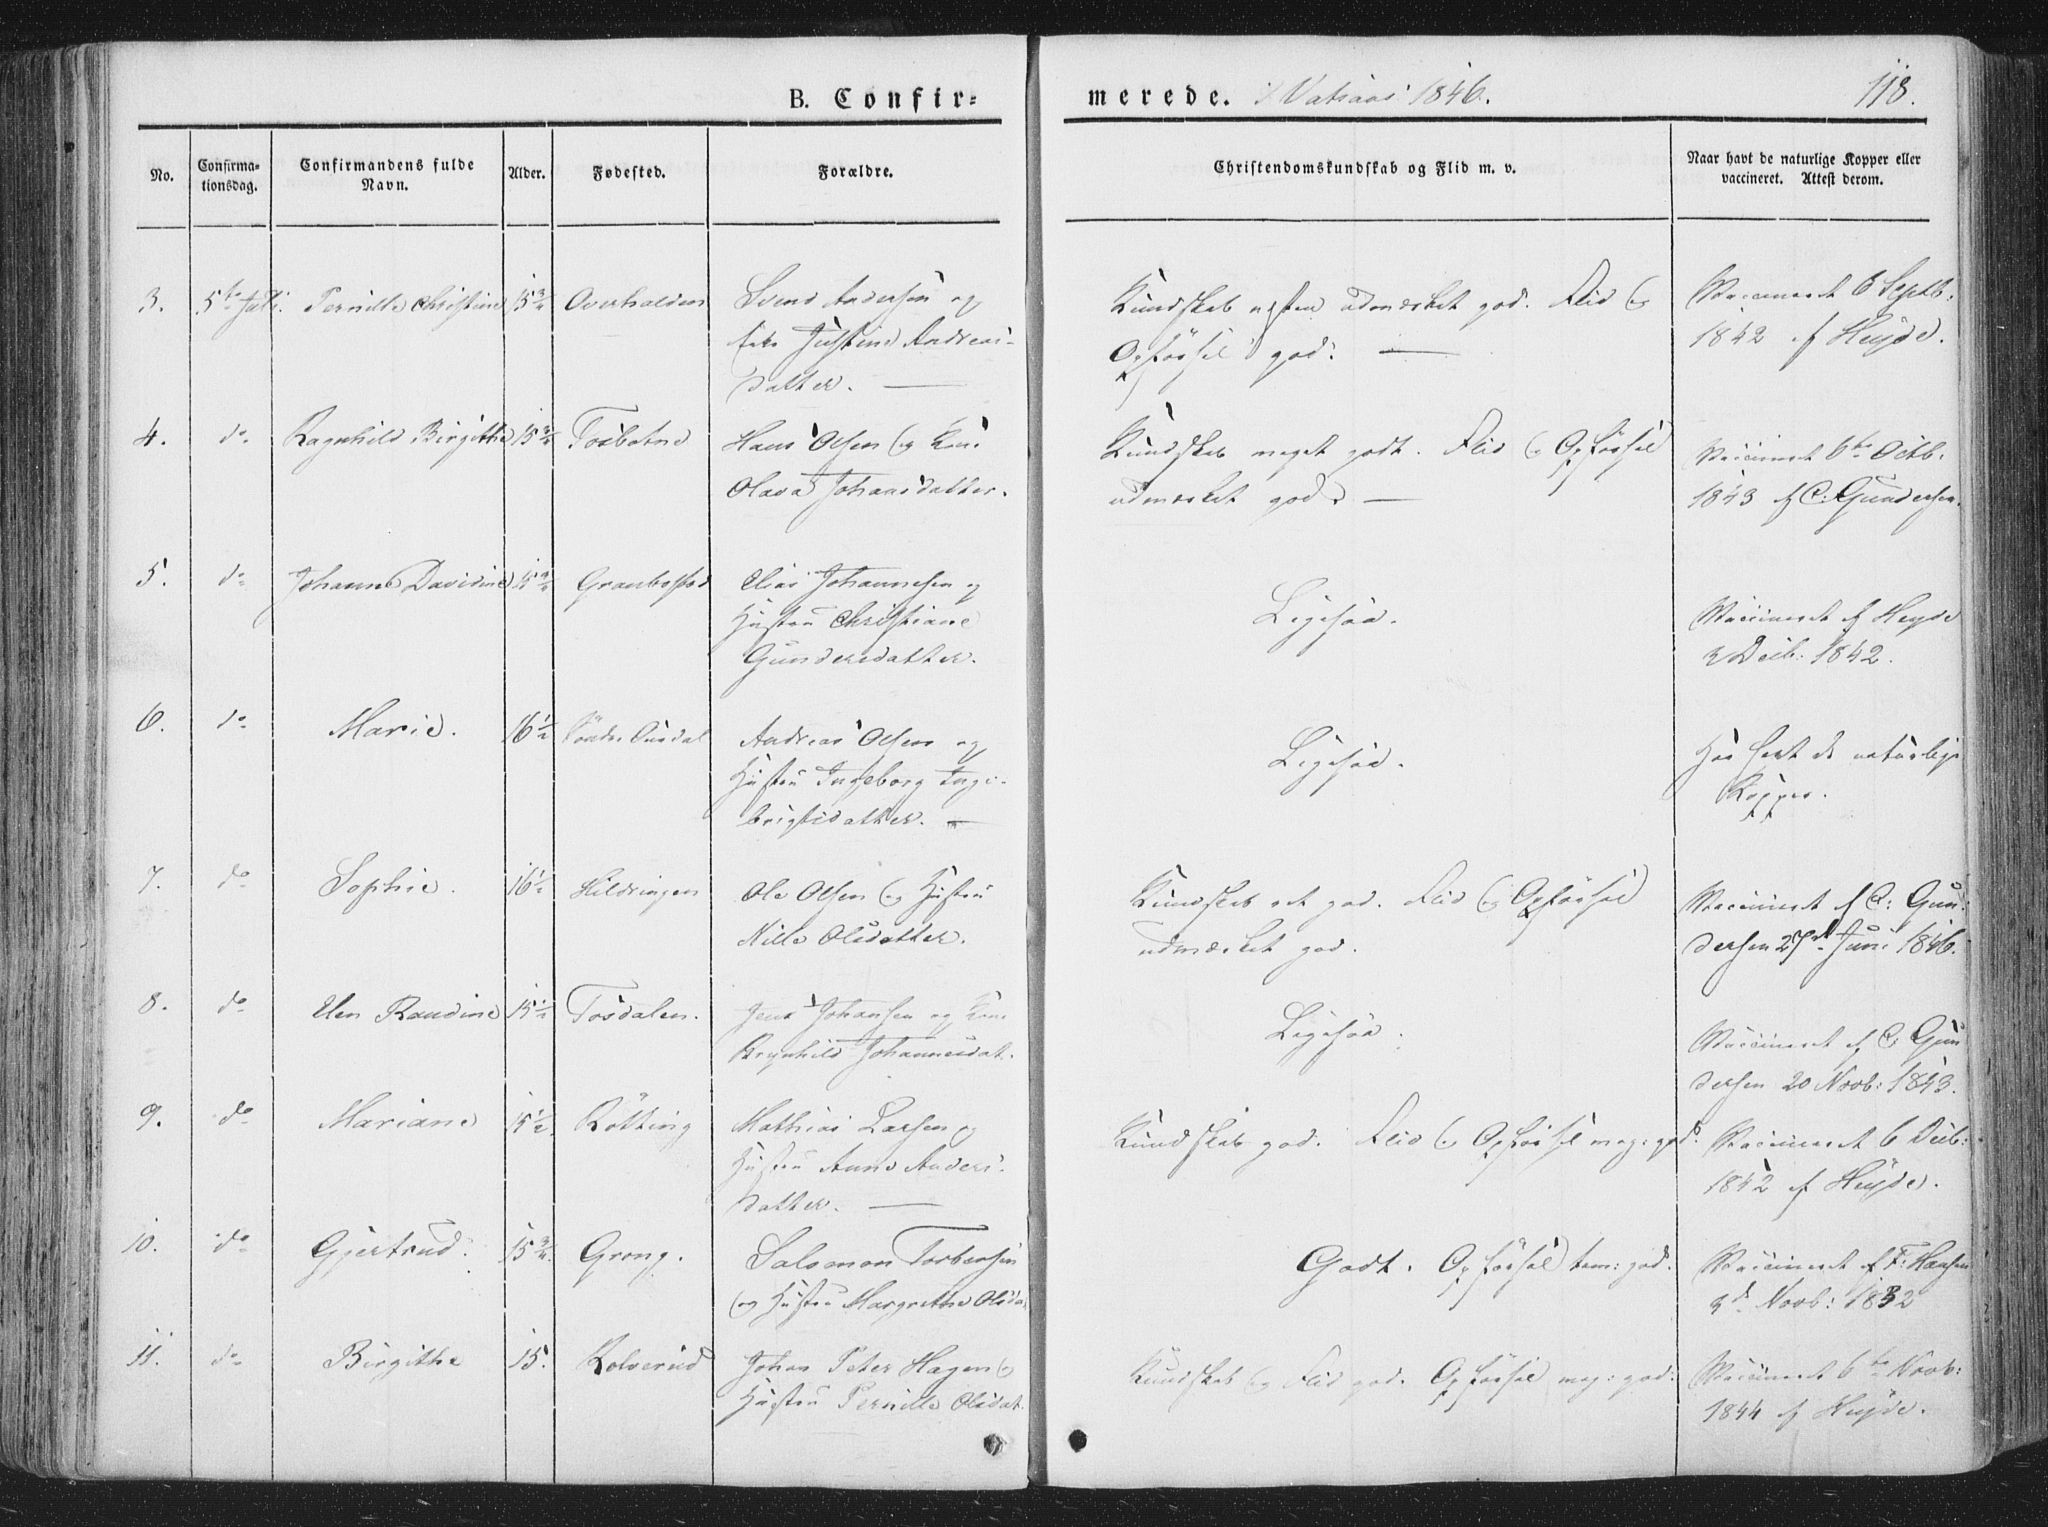 B. Confir-
merede. i Vatsaas 1846.
118.
No.
Confirma-
tionsdag.
Confirmandens fulde
Navn.
Alder.
Fødested.
Forældre.
Christendomskundskab og Flid m. v.
Naar havt de naturlige Kopper eller
vaccineret. Attest derom.
3. 5te Juli. Pernille Christine 15 3/4 Overhalden
Svend Andersen og
Justine Andreas-
datter. —
Kundskab næsten udmærket god. Flid og
Opførsel god. —
Vaccineret 6 Septb:
1842 af Heyde.
4. do. Ragnhild Birgithe 15 3/4 Tosbotne
Hans Olsen og Kone
Olava Johansdatter.
Kundskab meget godt. Flid og Opførsel
udmærket god. —
Vaccineret 6te Octb:
1843 af C: Gundersen.
5. do Johanne Davidine 15 3/4 Granbostad
Elias Johannesen og
Hustru Christiane
Gundersdatter.
Ligesaa.
Vaccineret af Heyde
Decb: 1842.
6. do Marie. 16 1/2 Søndre
Andreas Olsen og
Hustru Ingeborg Inge-
brigtsdatter. —
Ligesaa.
Har havt de naturlige
Kopper.
7. do Sophie. 16 1/2 Hildringen
Ole Olsen og Hustru
Nille Olsdatter.
Kundskab ret god. Flid og Opførsel
udmærket god.
Vaccineret af C: Gun-
dersen 27de Juni 1846.
8. do Elen Randine 15 1/2 Tosdalen.
Jens Johansen og Kone
Johannesdat.
Ligesaa.
Vaccineret af C: Gun
dersen 20 Novb: 1843.
9. do Mariane 15 1/2 Røtting
Mathias Larsen og
Hustru Anne Anders-
datter. —
Kundskab god. Flid og Opførsel meg: god.
Vaccineret 6 Decb:
1842 af Heyde.
10. do Gjertrud. 15 3/4 Grong.
Salomon Torbensen
og Hustru Margrethe Olsda.
Godt. Opførsel tem: god.
Vaccineret af F: Hansen
3de Novb: 1832
11. do Birgithe 15. Kolverud
Johan Peter Hagen og
Hustru Pernille Olsdat.
Kundskab og Flid god. Opførsel meg: god:
Vaccineret 6te Novb:
1844 af Heyde.